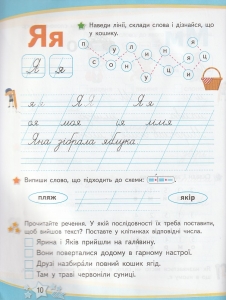 Яя
Наведи лінії, склади слова і дізнайся, що
у кошику.
Я я
п у л и н я
с о н и ц і
я я Я Я Я я
оя моя ія мія
Яна зібрала яблука
Випиши слово, що підходить до схеми:
пляж якір
Прочитайте речення. У якій послідовності їх треба поставити,
щоб вийшов текст? Поставте у клітинках відповідні числа.
Ярина і Яків прийшли на галявину.
Вони поверталися додому в гарному настрої.
Друзі назбирали повний кошик ягід.
Там у траві червоніли суниці.
10